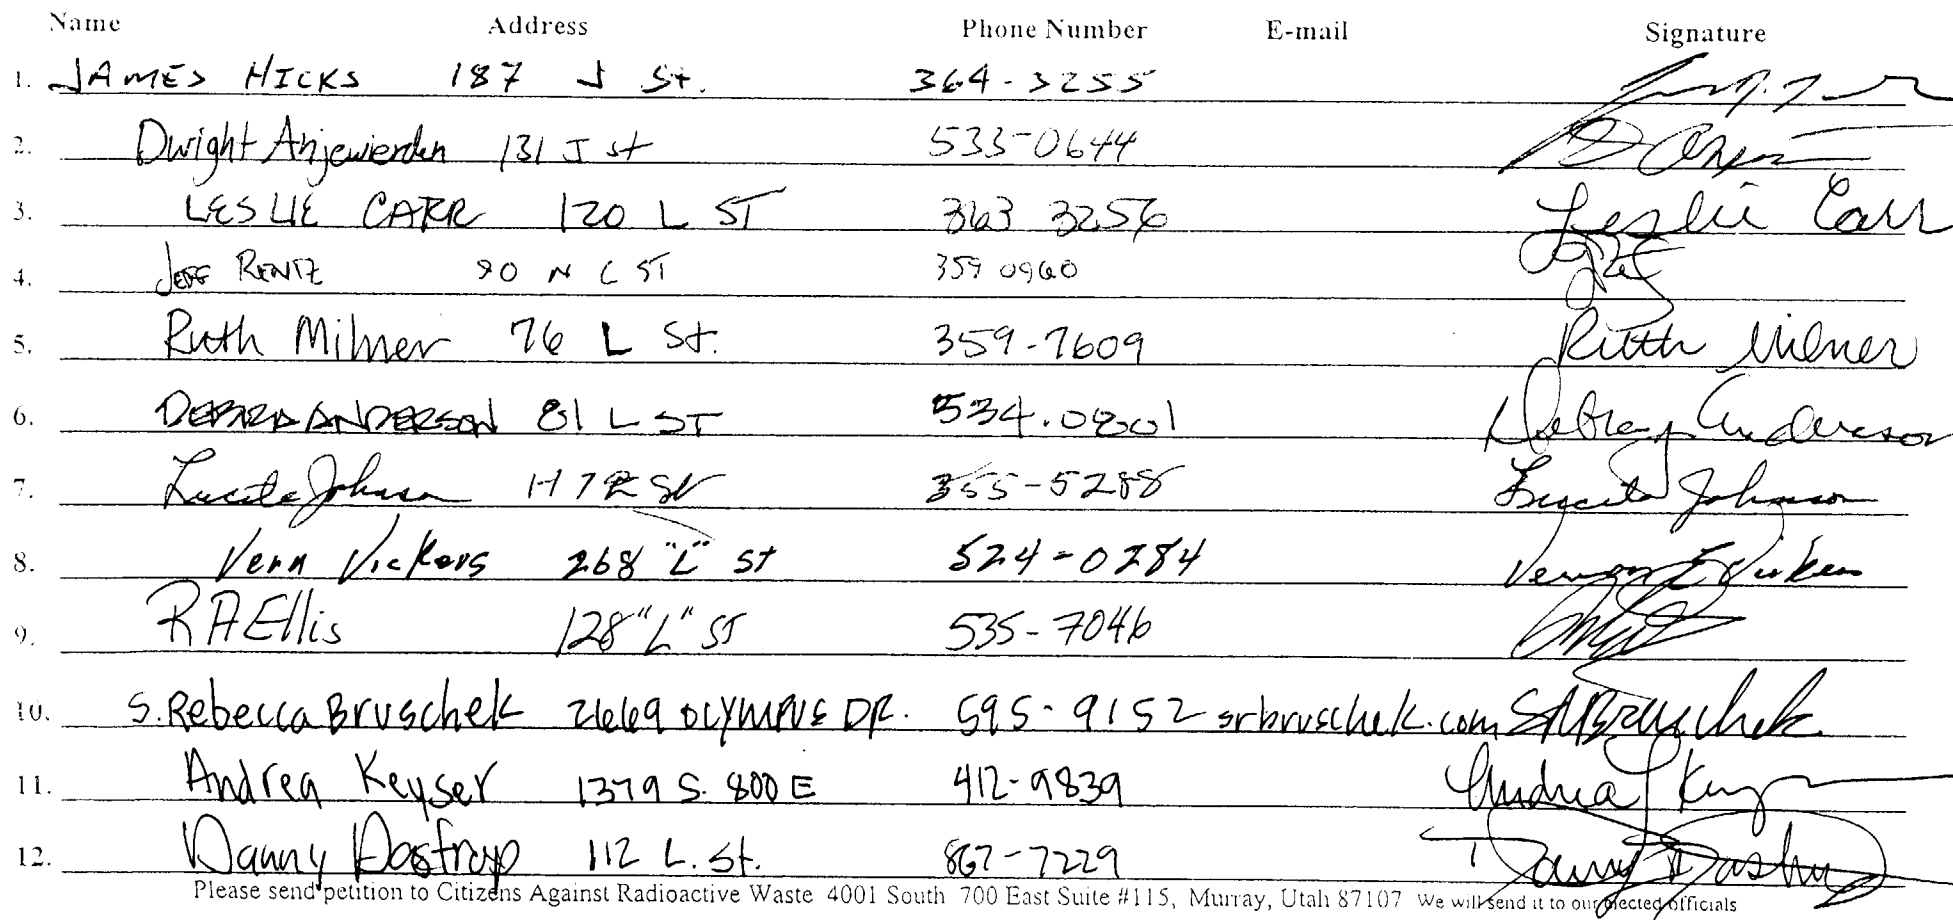 Name Address Phone Number E-mail Signature
1. JAMES HICKS 187 J St. 364-3255
2. Dwight Anjewierden 131 J St 533-0644
3. LESLIE CARR 120 L ST 363 3256 Leslie Carr
4. JEFF RENTZ 80 N C ST 359 0960
5. Ruth Milner 76 L St. 359-7609 Ruth Milner
6. DEBRA ANDERSON 81 L ST 534.0801 Debra Anderson
7. Lucile Johnson 355-5288 Lucile Johnson
8. Vern Vickers 268 "L" St 524-0284 Vernon E Vickers
9. R A Ellis 128 "L" ST 535-7046
10. S. Rebecca Bruschek 2669 OLYMPUS DR. 595-9152 srbruschek.com SRBruschek
11. Andrea Keyser 1379 S. 800 E 412-9839 Andrea Keyser
12. Danny 112 L. St. 867-7229 Danny
Please send petition to Citizens Against Radioactive Waste 4001 South 700 East Suite #115, Murray, Utah 87107 We will send it to our elected officials